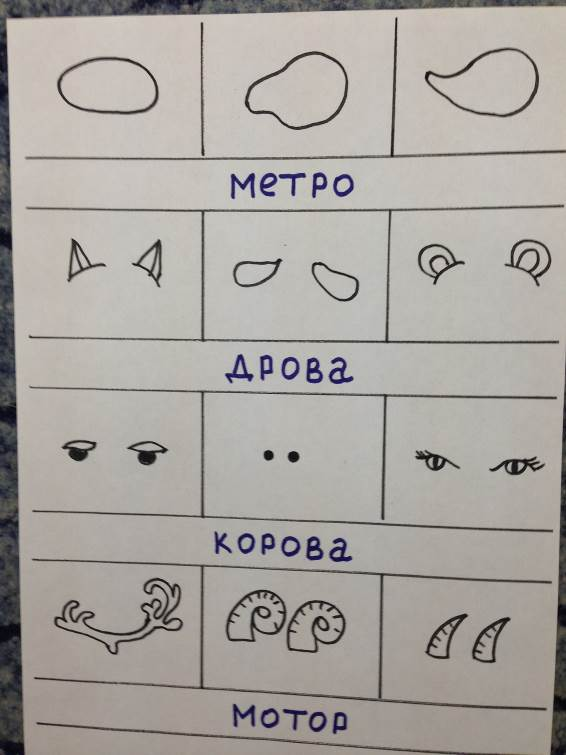 метро
дрова
корова
мотор